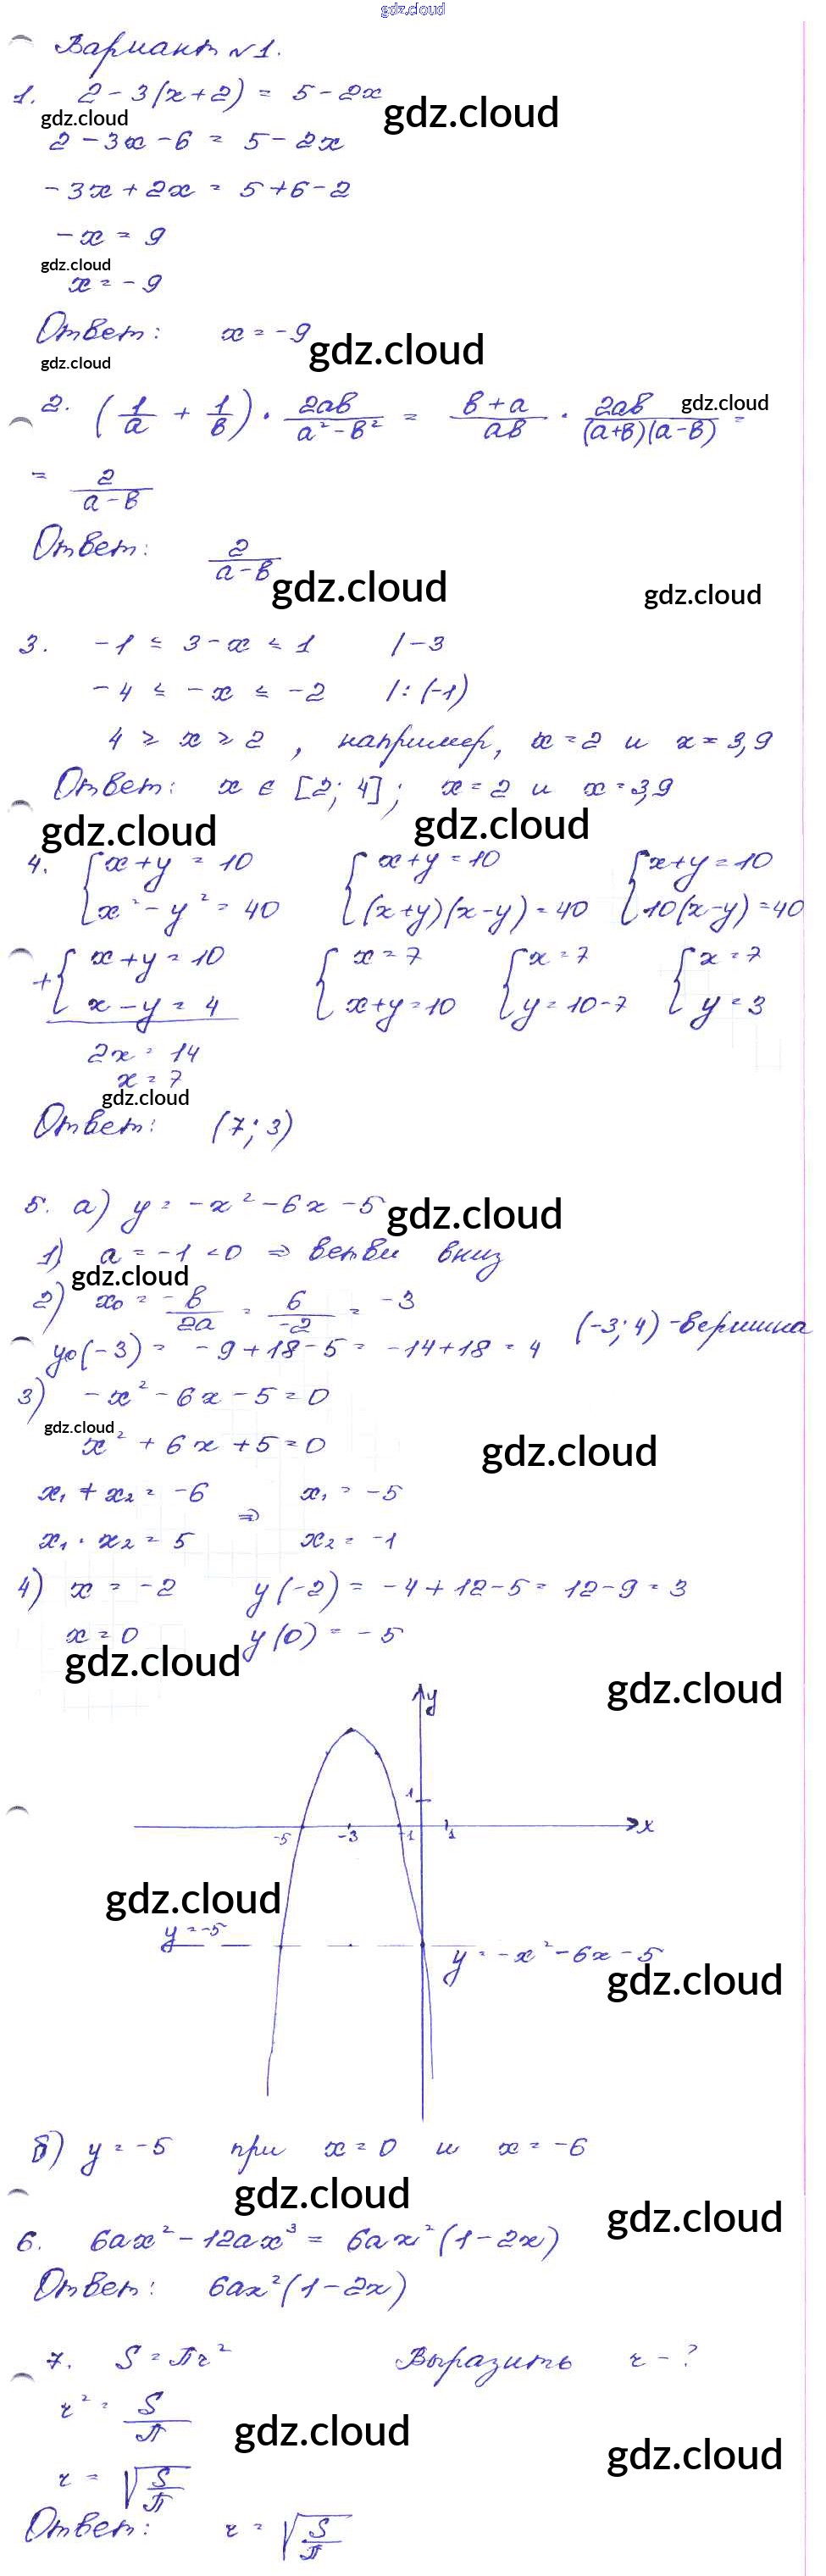 gdz.cloud
Вариант №1.
1. 2 - 3(x+2) = 5 - 2x
gdz.cloud gdz.cloud
2 - 3x - 6 = 5 - 2x
-3x + 2x = 5 + 6 - 2
-x = 9
gdz.cloud
x = -9
Ответ: x = -9
gdz.cloud gdz.cloud
2. (1/a + 1/b) · 2ab/(a² - b²) = (b+a)/ab · 2ab/((a+b)(a-b)) = gdz.cloud
= 2/(a-b)
Ответ: 2/(a-b)
gdz.cloud gdz.cloud
3. -1 ≤ 3-x ≤ 1 /-3
-4 ≤ -x ≤ -2 /:(-1)
4 ≥ x ≥ 2, например, x=2 и x=3,9
Ответ: x ∈ [2; 4]; x=2 и x=3,9
gdz.cloud gdz.cloud
4. {x+y = 10 {x+y = 10 {x+y = 10
x² - y² = 40 (x+y)(x-y) = 40 10(x-y) = 40
+{x+y = 10 {x = 7 {x = 7 {x = 7
x-y = 4 x+y = 10 y = 10-7 y = 3
2x = 14
x = 7
gdz.cloud
Ответ: (7; 3)
5. а) y = -x² - 6x - 5 gdz.cloud
1) a = -1 < 0 ⇒ ветви вниз
gdz.cloud
2) x₀ = -b/2a = 6/-2 = -3
(-3; 4) - вершина
y₀(-3) = -9 + 18 - 5 = -14 + 18 = 4
3) -x² - 6x - 5 = 0
gdz.cloud
x² + 6x + 5 = 0 gdz.cloud
x₁ + x₂ = -6 ⇒ x₁ = -5
x₁ · x₂ = 5 x₂ = -1
4) x = -2 y(-2) = -4 + 12 - 5 = 12 - 9 = 3
x = 0 y(0) = -5
gdz.cloud gdz.cloud
y
1
-5 -3 -1 1 x
gdz.cloud
y = -5
y = -x² - 6x - 5
gdz.cloud
б) y = -5 при x = 0 и x = -6
gdz.cloud gdz.cloud
6. 6ax² - 12ax³ = 6ax²(1-2x)
Ответ: 6ax²(1-2x)
7. S = πr² Выразить r - ?
r² = S/π
gdz.cloud gdz.cloud
r = √(S/π)
Ответ: r = √(S/π)